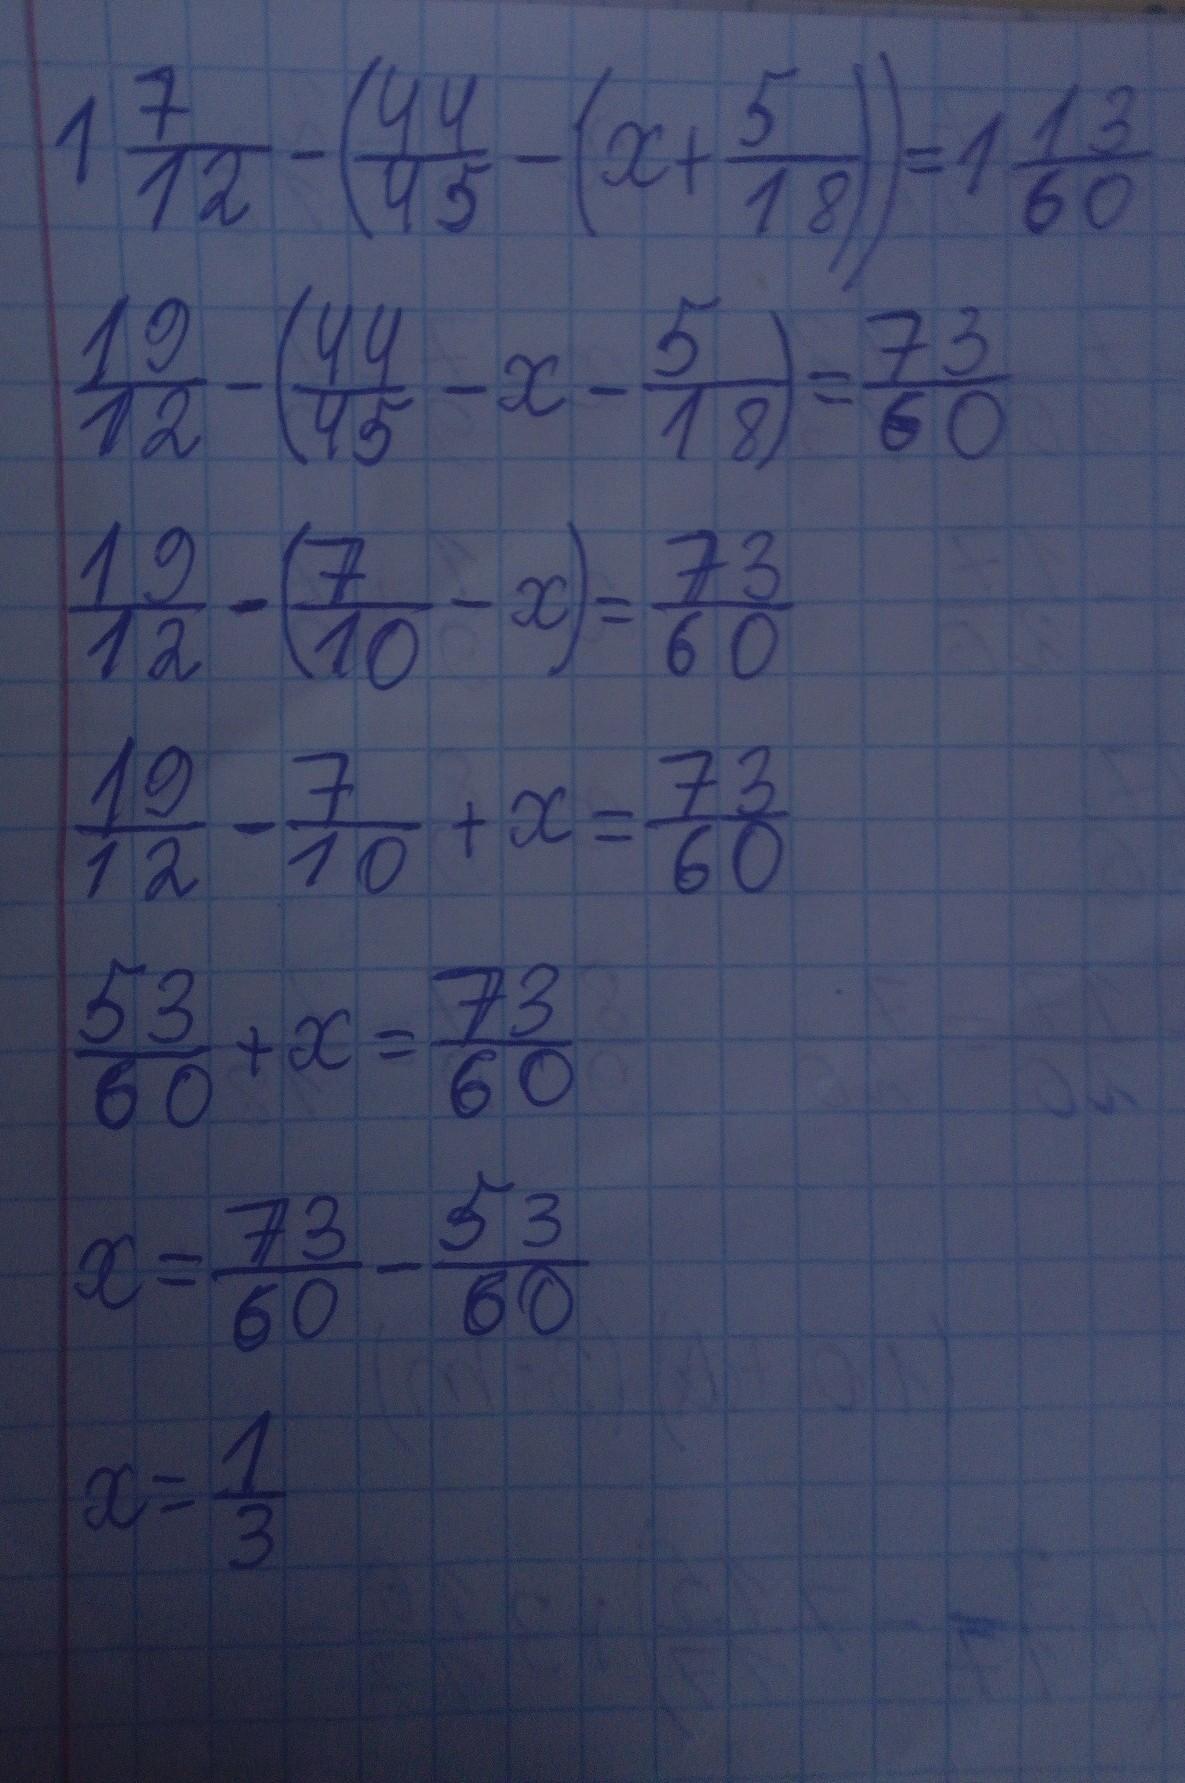 1 7/12 - (44/45 - (x + 5/18)) = 1 13/60
19/12 - (44/45 - x - 5/18) = 73/60
19/12 - (7/10 - x) = 73/60
19/12 - 7/10 + x = 73/60
53/60 + x = 73/60
x = 73/60 - 53/60
x = 1/3